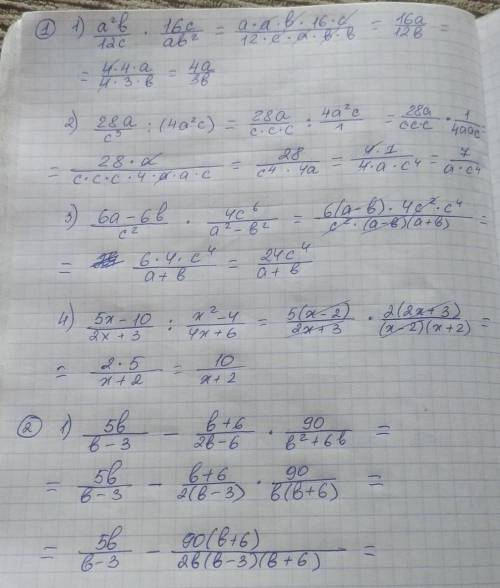 ① 1) a²b/12c · 16c/ab² = a·a·b·16·c/12·c·a·b·b = 16a/12b =
= 4·4·a/4·3·b = 4a/3b
2) 28a/c³ : (4a²c) = 28a/c·c·c : 4a²c/1 = 28a/ccc · 1/4aac
= 28·a/c·c·c·4·a·a·c = 28/c⁴·4a = 4·7/4·a·c⁴ = 7/a·c⁴
3) 6a-6b/c² · 4c⁶/a²-b² = 6(a-b)·4c²·c⁴/c²·(a-b)(a+b) =
= 6·4·c⁴/a+b = 24c⁴/a+b
4) 5x-10/2x+3 : x²-4/4x+6 = 5(x-2)/2x+3 · 2(2x+3)/(x-2)(x+2) =
= 2·5/x+2 = 10/x+2
② 1) 5b/b-3 - b+6/2b-6 · 90/b²+6b =
= 5b/b-3 - b+6/2(b-3) · 90/b(b+6) =
= 5b/b-3 - 90(b+6)/2b(b-3)(b+6) =